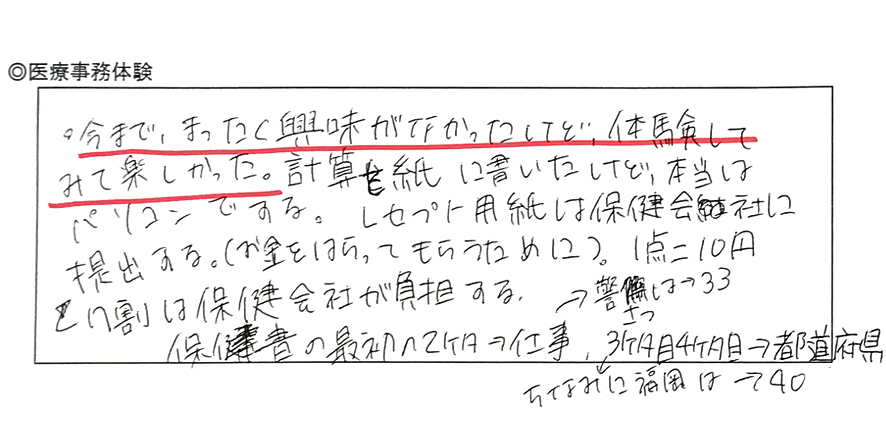 ◎医療事務体験
・今まで、まったく興味がなかったけど、体験して
みて楽しかった。計算を紙に書いたけど、本当は
パソコンでする。レセプト用紙は保健会社に
提出する。(お金をはらってもらうために)。1点=10円
7割は保健会社が負担する。
→警さつは→33
保健書の最初の2ケタ→仕事、3ケタ目4ケタ目→都道府県
ちなみに福岡は→40